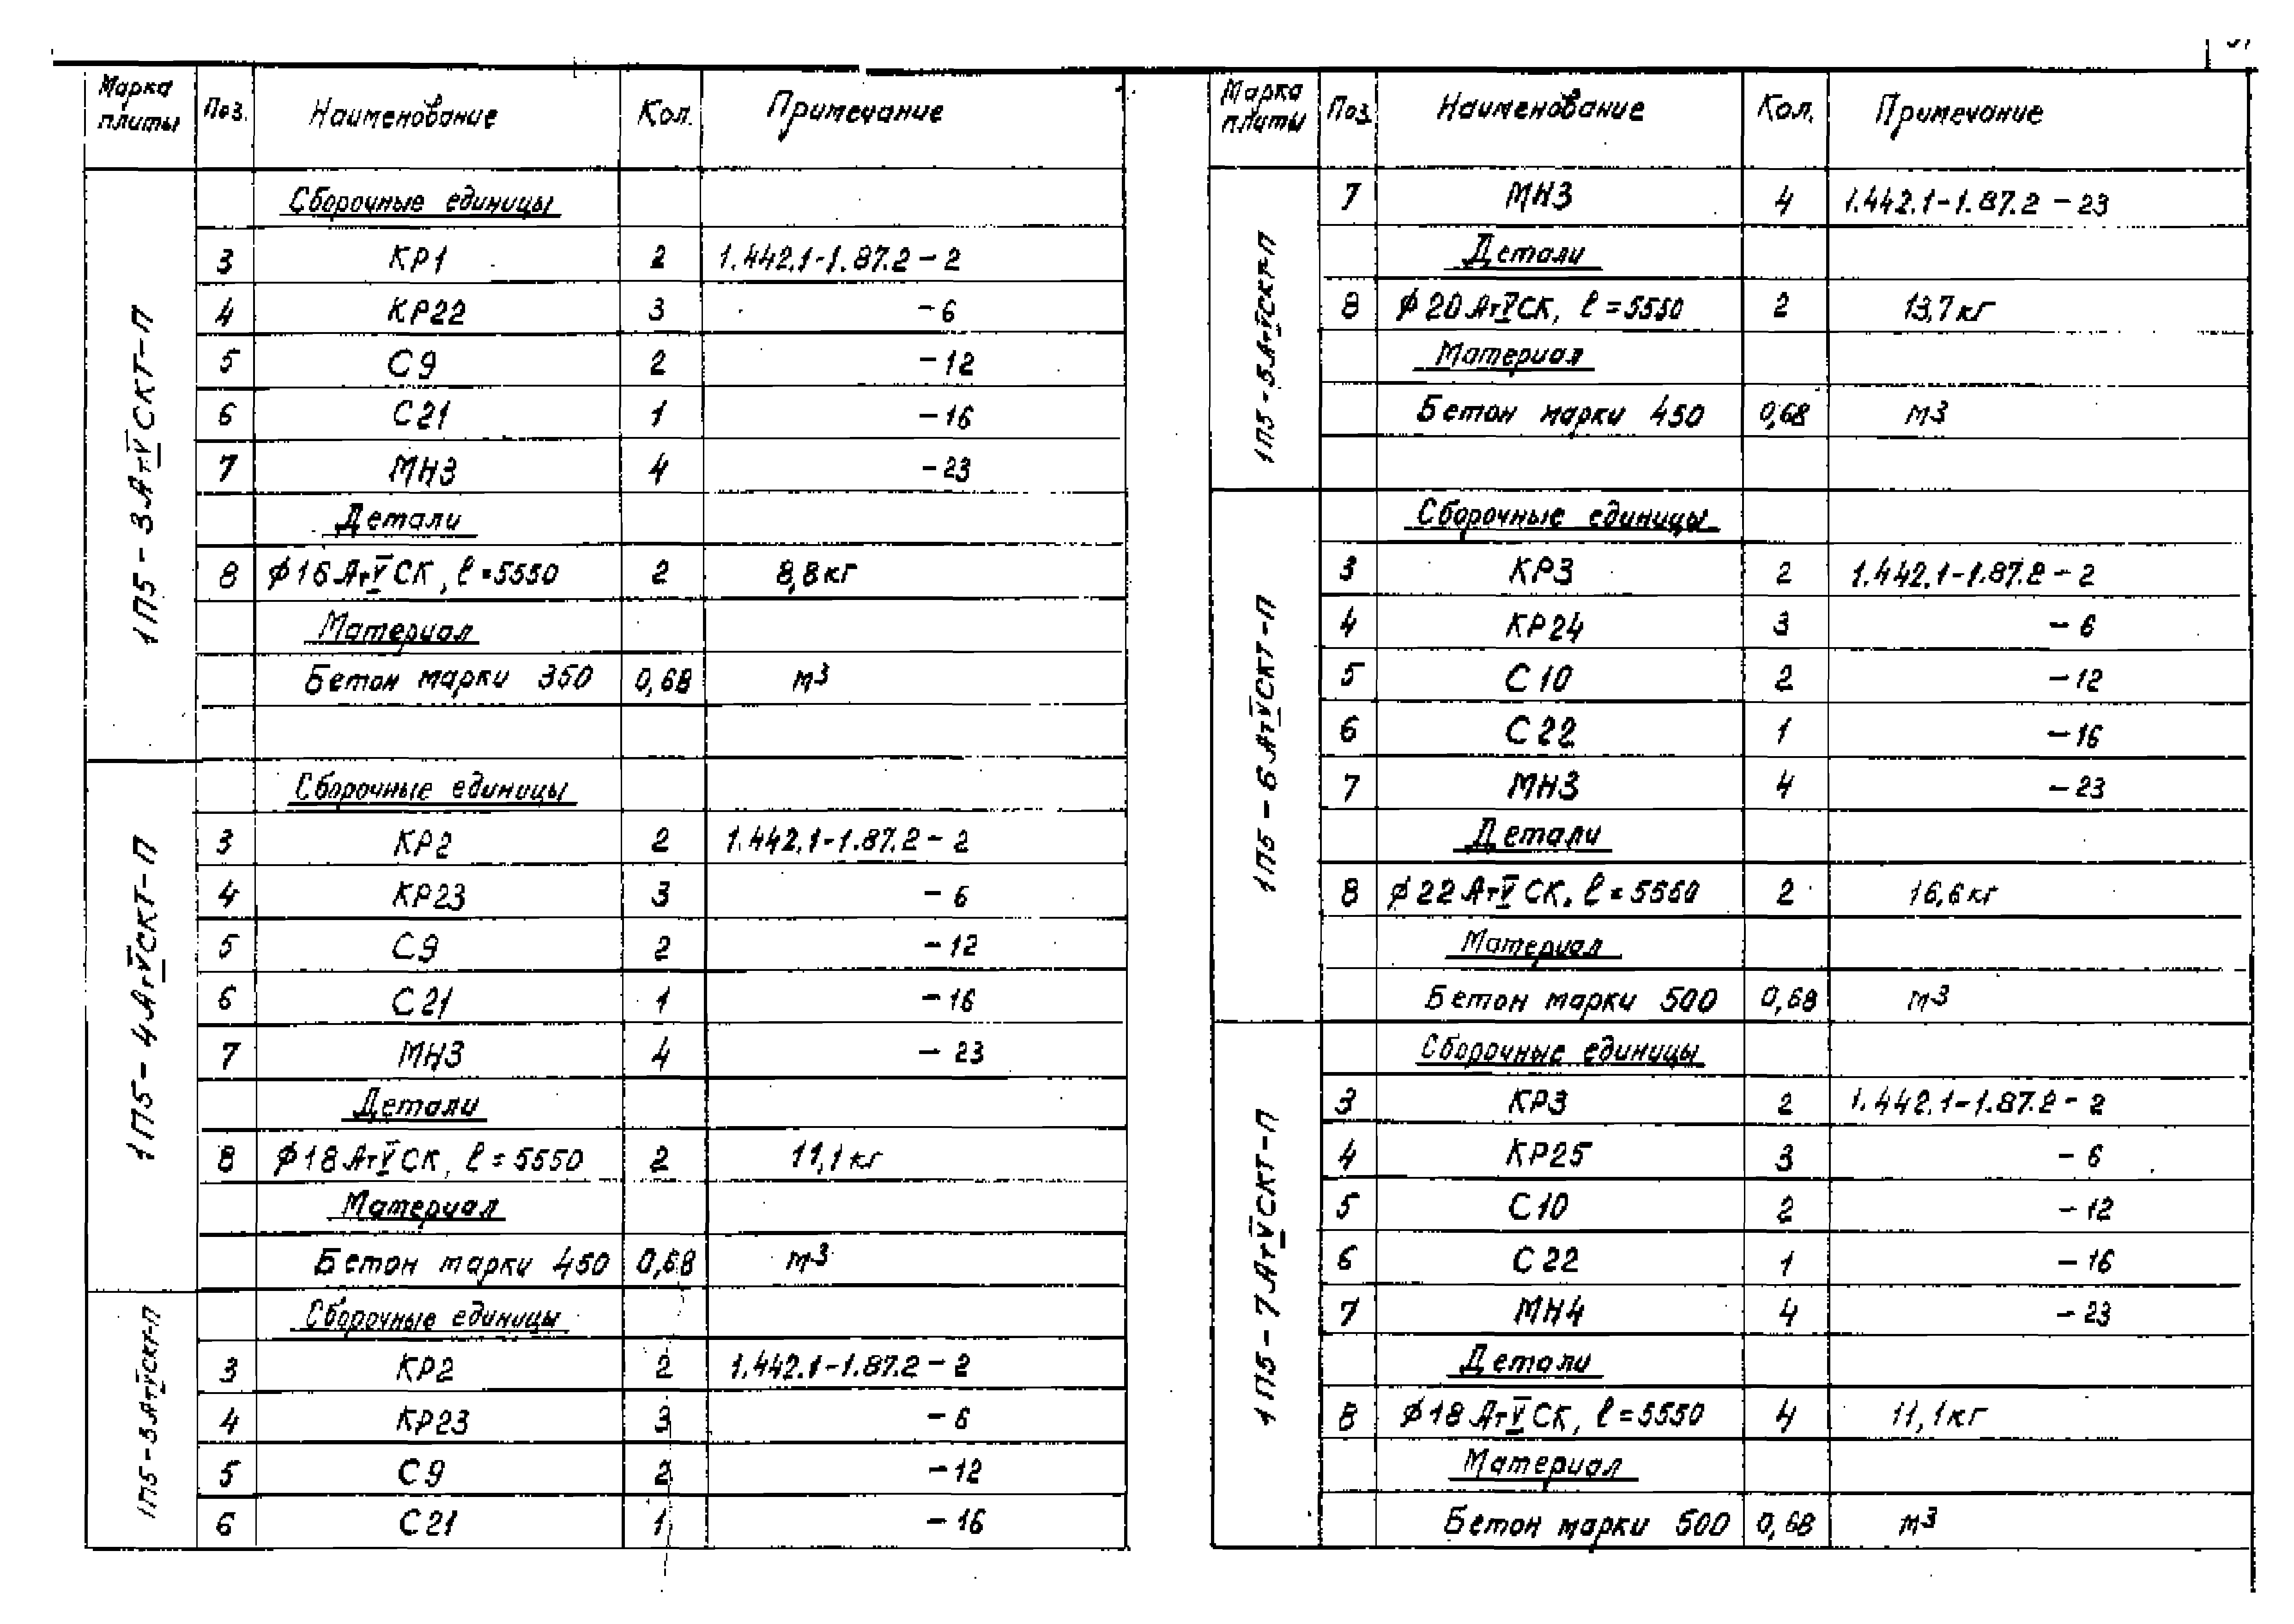 Марка плиты Поз. Наименование Кол. Примечание
1П5-3АтVСКТ-П
Сборочные единицы
3 КР1 2 1.442.1-1.87.2-2
4 КР22 3 -6
5 С9 2 -12
6 С21 1 -16
7 МН3 4 -23
Детали
8 ϕ16АтVСК, ℓ=5550 2 8,8кг
Материал
Бетон марки 350 0,68 м3
1П5-4АтVСКТ-П
Сборочные единицы
3 КР2 2 1.442.1-1.87.2-2
4 КР23 3 -6
5 С9 2 -12
6 С21 1 -16
7 МН3 4 -23
Детали
8 ϕ18АтVСК, ℓ=5550 2 11,1кг
Материал
Бетон марки 450 0,68 м3
1П5-5АтVСКТ-П
Сборочные единицы
3 КР2 2 1.442.1-1.87.2-2
4 КР23 3 -6
5 С9 2 -12
6 С21 1 -16
Марка плиты Поз. Наименование Кол. Примечание
1П5-5АтVСКТ-П
7 МН3 4 1.442.1-1.87.2-23
Детали
8 ϕ20АтVСК, ℓ=5550 2 13,7кг
Материал
Бетон марки 450 0,68 м3
1П5-6АтVСКТ-П
Сборочные единицы
3 КР3 2 1.442.1-1.87.2-2
4 КР24 3 -6
5 С10 2 -12
6 С22 1 -16
7 МН3 4 -23
Детали
8 ϕ22АтVСК, ℓ=5550 2 16,6кг
Материал
Бетон марки 500 0,68 м3
1П5-7АтVСКТ-П
Сборочные единицы
3 КР3 2 1.442.1-1.87.2-2
4 КР25 3 -6
5 С10 2 -12
6 С22 1 -16
7 МН4 4 -23
Детали
8 ϕ18АтVСК, ℓ=5550 4 11,1кг
Материал
Бетон марки 500 0,68 м3